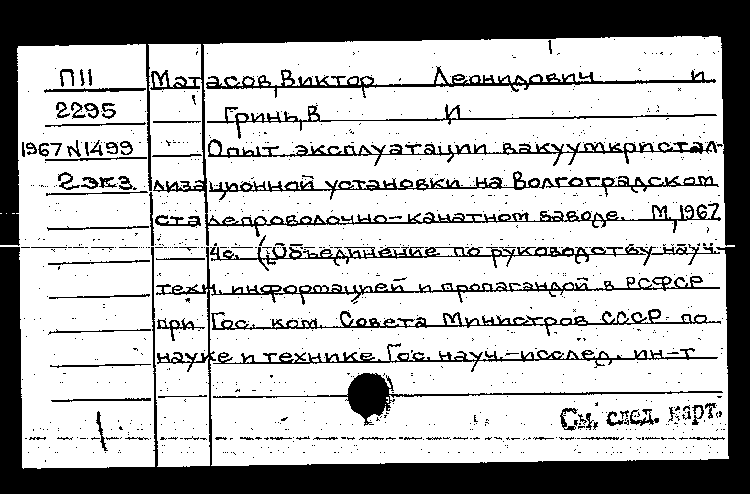 П11 Матасов, Виктор Леонидович и
2295 Гринь, В И
1967 N1499 Опыт эксплуатации вакуумкристал-
2 экз. лизационной установки на Волгоградском
сталепроволочно-канатном заводе. М, 1967
4с. (Объединение по руководству науч.-
техн. информацией и пропагандой в РСФСР
при Гос. ком. Совета Министров СССР по
науке и технике. Гос. науч.-исслед. ин-т
См. след. карт.